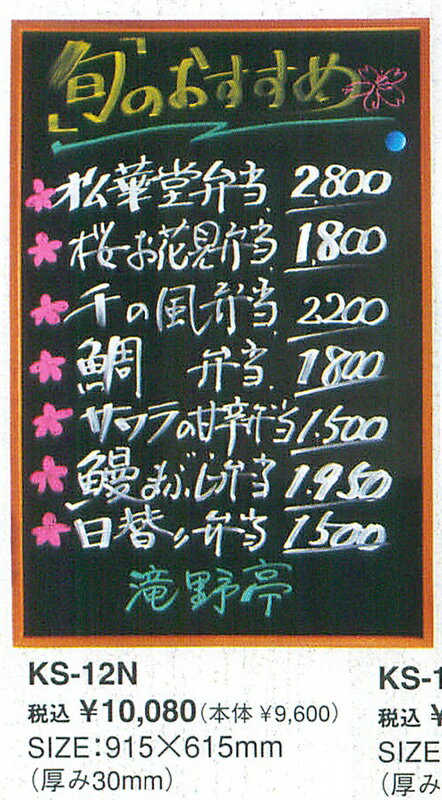 「旬」のおすすめ
松華堂弁当 2.800
桜お花見弁当 1.800
千の風弁当 2200
鯛 弁当 1800
サワラの甘辛弁当 1.500
鰻まぶし弁当 1.950
日替り弁当 1500
滝野亭
KS-12N
税込 ¥10,080(本体 ¥9,600)
SIZE:915×615mm
(厚み30mm)
KS-1
税込 ¥
SIZE
(厚み